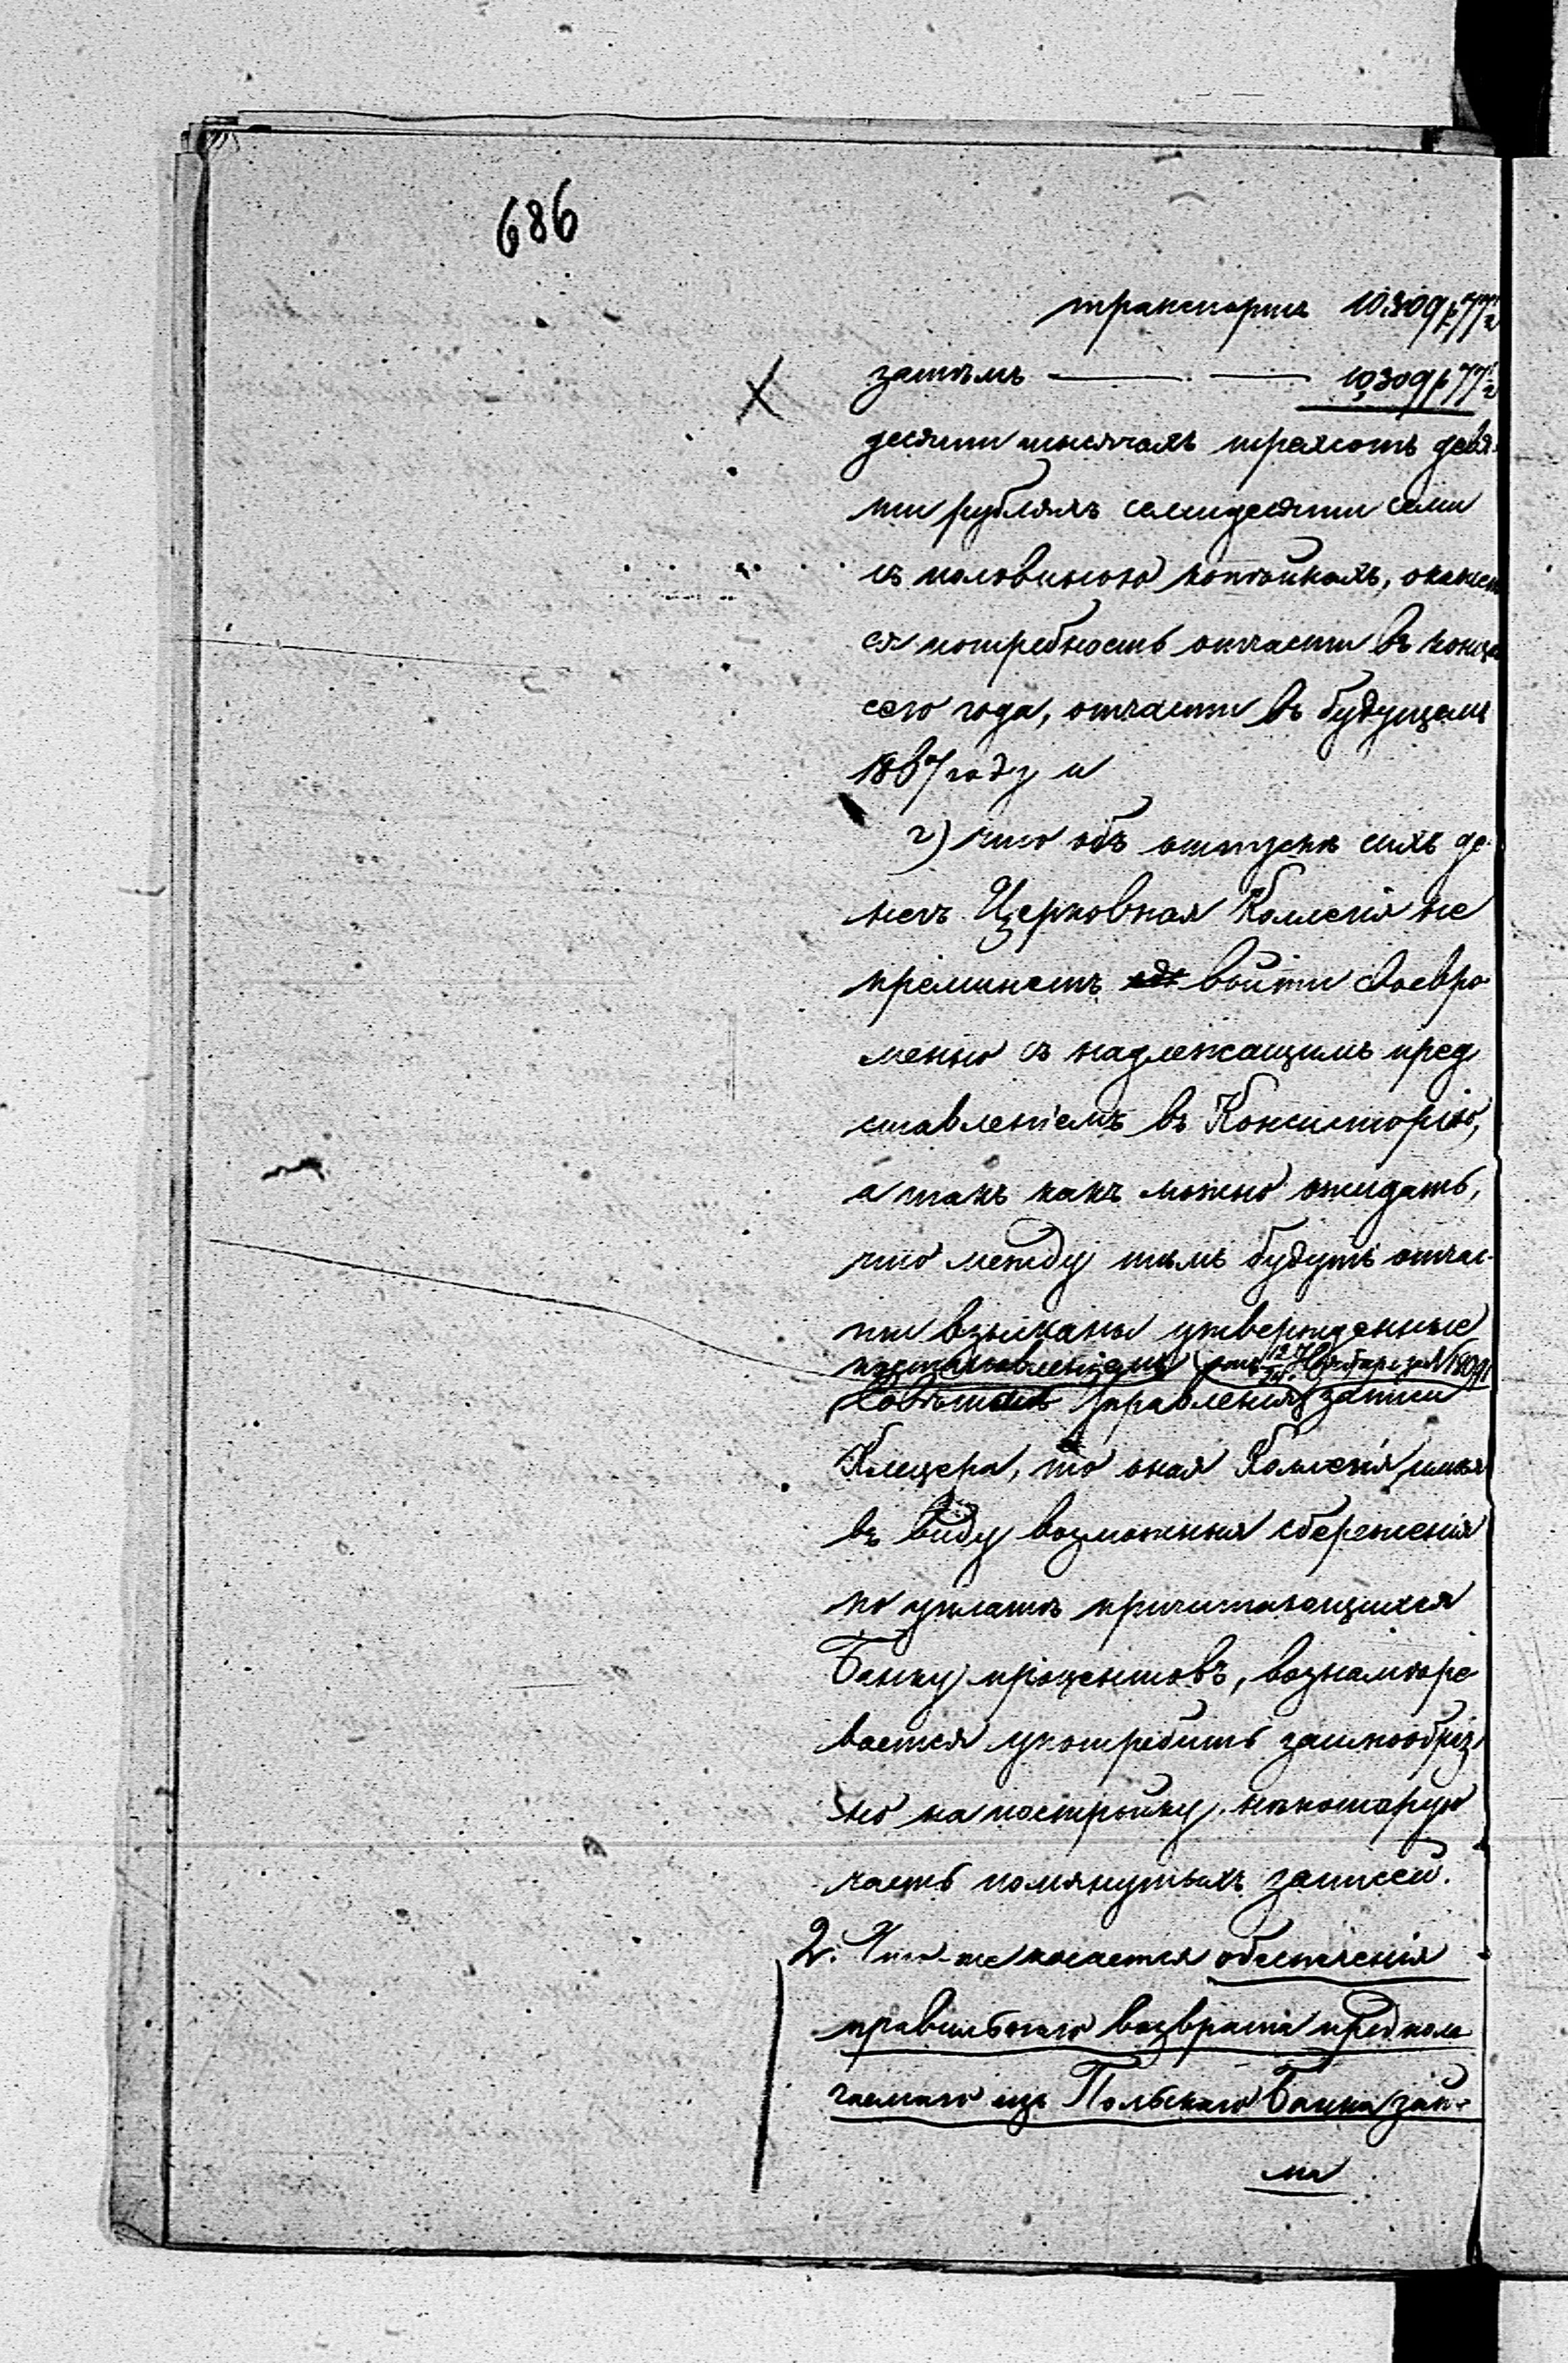 686
транспортъ 10,309 р 77½
затѣмъ — — 10,309 р 77½
десяти тысячахъ трехсотъ девя-
ти рубляхъ семидесяти семи
съ половиною копѣйкахъ, окажет
ся потребность отчасти въ концѣ
сего года, отчасти въ будущемъ
1867 году и
г) что объ отпускѣ сихъ де-
негъ Церковная Коллегія не
преминетъ войти своевре-
менно съ надлежащимъ пред
ставленіемъ въ Консисторію,
а такъ какъ можно ожидать,
что между тѣмъ будутъ отчас-
ти взысканы утвержденные
постановленіемъ
Совѣта Управленія записи
Клецера, то оная Коллегія, имѣя
въ виду возможныя сбереженія
по уплатѣ причитающихся
Банку процентовъ, вознамѣре
вается употребить заимообраз
но на постройку нѣкоторую
часть помянутыхъ записей.
2. Что-же касается обезпеченія
правильнаго возврата предпола
гаемаго изъ Польскаго Банка зай-
ма